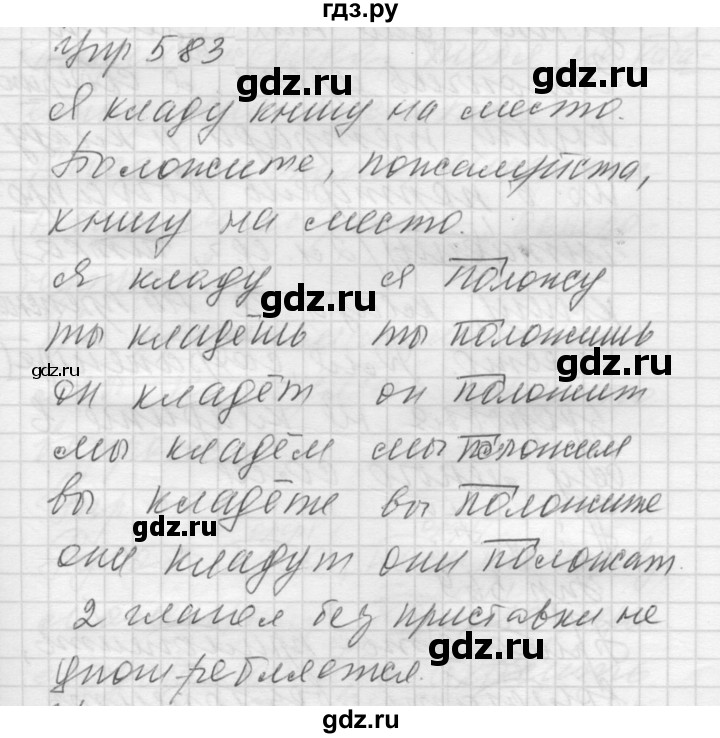 гдз.ру
Упр 583
gdz.ru
gdz.ru
Я кладу книгу на место.
Положите, пожалуйста,
книгу на место.
я кладу я положу
gdz.ru
ты кладёшь ты положишь
gdz.ru
gdz.ru
он кладёт он положит
мы кладём мы положим
вы кладёте вы положите
gdz.ru
они кладут они положат.
2 глагол без приставки не
gdz.ru
употребляется.
gdz.ru